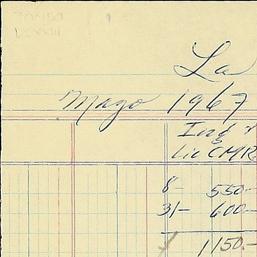 La
Mayo 1967
Ing y
Lic CMR
8- 550.-
31- 600.-
1150.-